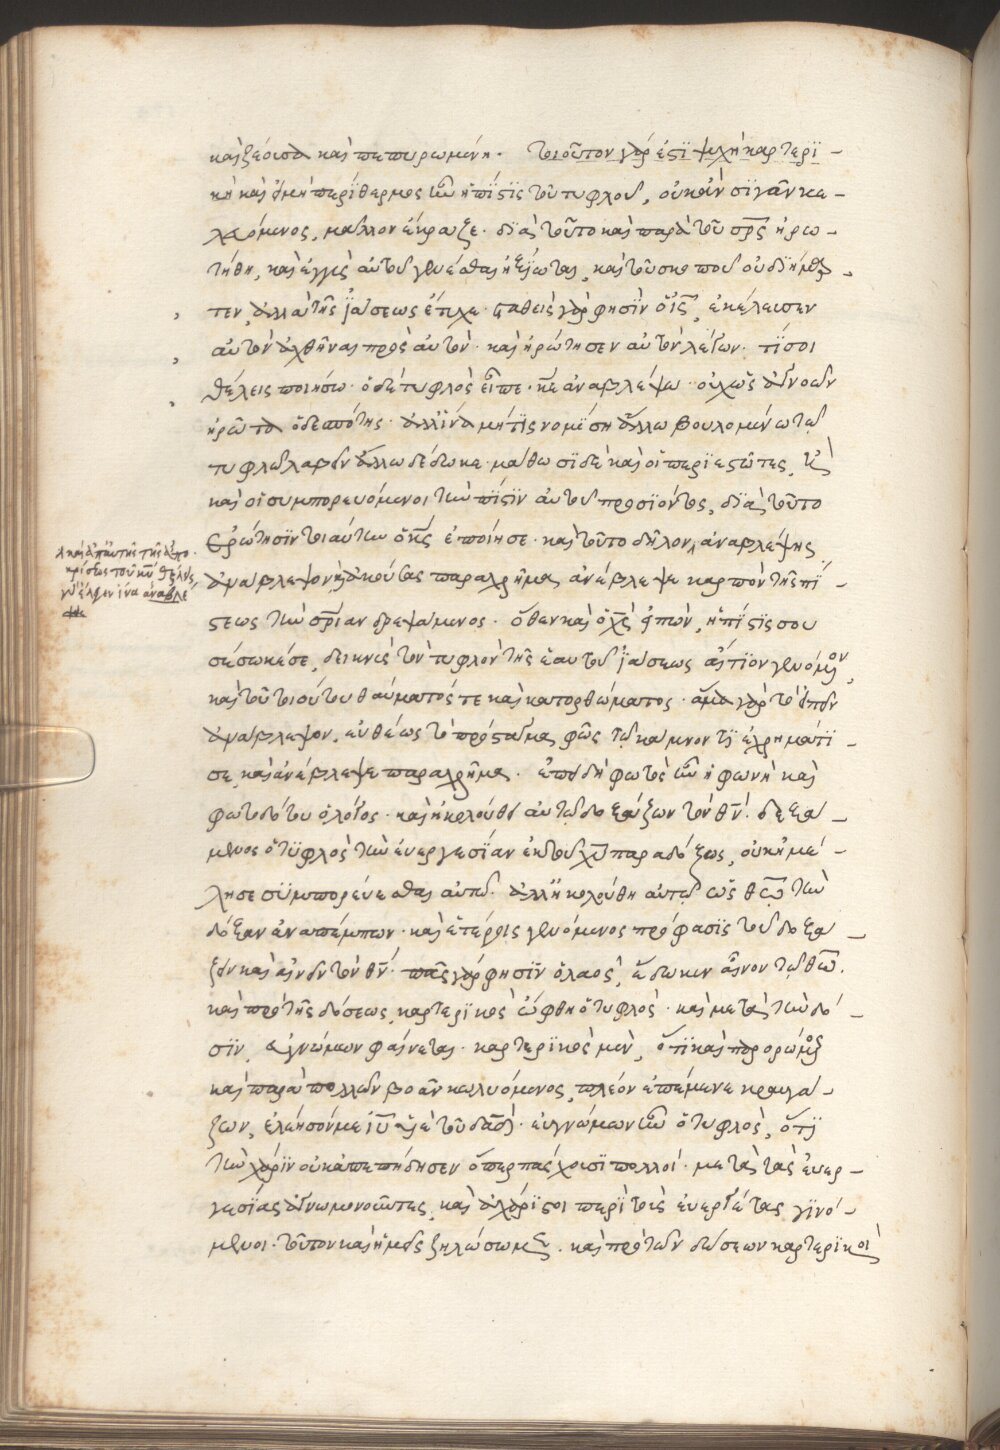 καὶ ζέουσα καὶ πεπυρωμένη. τοιοῦτον γάρ ἐστϊ ψυχὴ καρτερϊ-
κὴ καὶ περίθερμος ἦν ἡ πίστϊς τοῦ τυφλοῦ, οὐκοῦν σϊγᾶν κε-
λευόμενος, μᾶλλον ἔκραζε· δϊὰ τοῦτο καὶ παρὰ τοῦ σρ̅ς ἠρω-
τήθη, καὶ ἐγγὺς αὐτοῦ γενέσθαι ἠξϊώται, καὶ τοῦ σκοποῦ οὐ διήμαρ-
τεν, ἀλλὰ τῆς ἰάσεως ἔτυχε· σταθεὶς γάρ φησϊν ὁ ἰς̅, ἐκέλευσεν
αὐτὸν ἀχθῆναι πρὸς αὐτὸν· καὶ ἠρώτησεν αὐτὸν λέγων· τί σοι
θέλεις ποιήσω· ὁ δὲ τυφλὸς εἶπε· κε̅ ἀναβλέψω· οὐχ ὡς ἀγνοῶν
ἠρώτα ὁ δεσπότης· ἀλλ' ἵνα μήτϊς νομίσῃ ἄλλο βουλομένω τῶ
τυφλῶ λαβεῖν ἄλλο δέδωκε· μάθωσϊ δὲ καὶ οἱ περϊεστῶτες,
καὶ οἱ συμπορευόμενοι τὴν πίστϊν αὐτοῦ προσϊόντος, δϊὰ τοῦτο
ἐρώτησϊν τοιαύτην ὁ κς̅ ἐποίησε· καὶ τοῦτο δῆλον, ἀναβλέψης
ἀνάβλεψον ἀκούσας παραχρῆμα ἀνέβλεψε καρπὸν τῆς πί-
στεως τὴν σρ̅ίαν δρεψάμενος· ὅθεν καὶ ὁ χς̅ εἰπὼν, ἡ πίστϊς σου
σέσωκέ σε, δεικνὺς τὸν τυφλὸν τῆς ἑαυτοῦ ἰάσεως αἴτϊον γενόμενον,
καὶ τοῦ τοιούτου θαύματός τε καὶ κατορθώματος· ἅμα γὰρ τὸ εἰπεῖν
ἀνάβλεψον, εὐθέως τὸ πρόσταγμα φῶς τῶ κάμνοντϊ ἐχρημάτϊ-
σε, καὶ ἀνέβλεψε παραχρῆμα. ἐπειδὴ φωτὸς ἦν ἡ φωνὴ καὶ
φωτὸς ὁ λόγος· καὶ ἠκολούθει αὐτῶ δοξάζων τὸν θν̅· δεξά-
μενος ὁ τυφλὸς τὴν εὐεργεσϊαν ἐκ τοῦ χυ̅ παραδόξως, οὐκ ἠμέ-
λησε συμπορεύεσθαι αὐτῶ. ἀλλ' ἠκολούθη αὐτῶ ὡς θεῶ τὴν
δόξαν ἀναπέμπων· καὶ ἑτέροις γενόμενος πρόφασϊς τοῦ δοξά-
ζειν καὶ αἰνεῖν τὸν θν̅· πᾶς γάρ φησϊν ὁ λαὸς, ἔδωκεν αἶνον τῶ θω̅.
καὶ πρὸ τῆς δόσεως, καρτερϊκὸς ὤφθη ὁ τυφλὸς· καὶ μετὰ τὴν δό-
σϊν, εὐγνώμων φαίνεται· καρτερϊκὸς μὲν, ὅτϊ καὶ
καὶ παρὰ πολλῶν βοᾶν κωλυόμενος, πλέον ἐπέμενε κραυγά-
ζων, ἐλέησόν με ιυ̅ υἱὲ τοῦ δαδ̅· εὐγνώμων ἦν ὁ τυφλὸς, ὅτϊ
τὴν χάρϊν οὐκ ἀπεπήδησεν ὅπερ πάσχουσϊ πολλοί· μετὰ τὰς εὐερ-
γεσίας ἀγνωμονοῦντες, καὶ ἀχάρϊστοι περὶ τοὺς εὐεργέτας γϊνό-
μενοι· τοῦτον καὶ ἡμεῖς ζηλώσωμεν. καὶ πρὸ τῶν δώσεων καρτερϊκοὶ
κρίσεως τοῦ κυ̅ θέλεις,
ἵνα ἀναβλέ
ψω